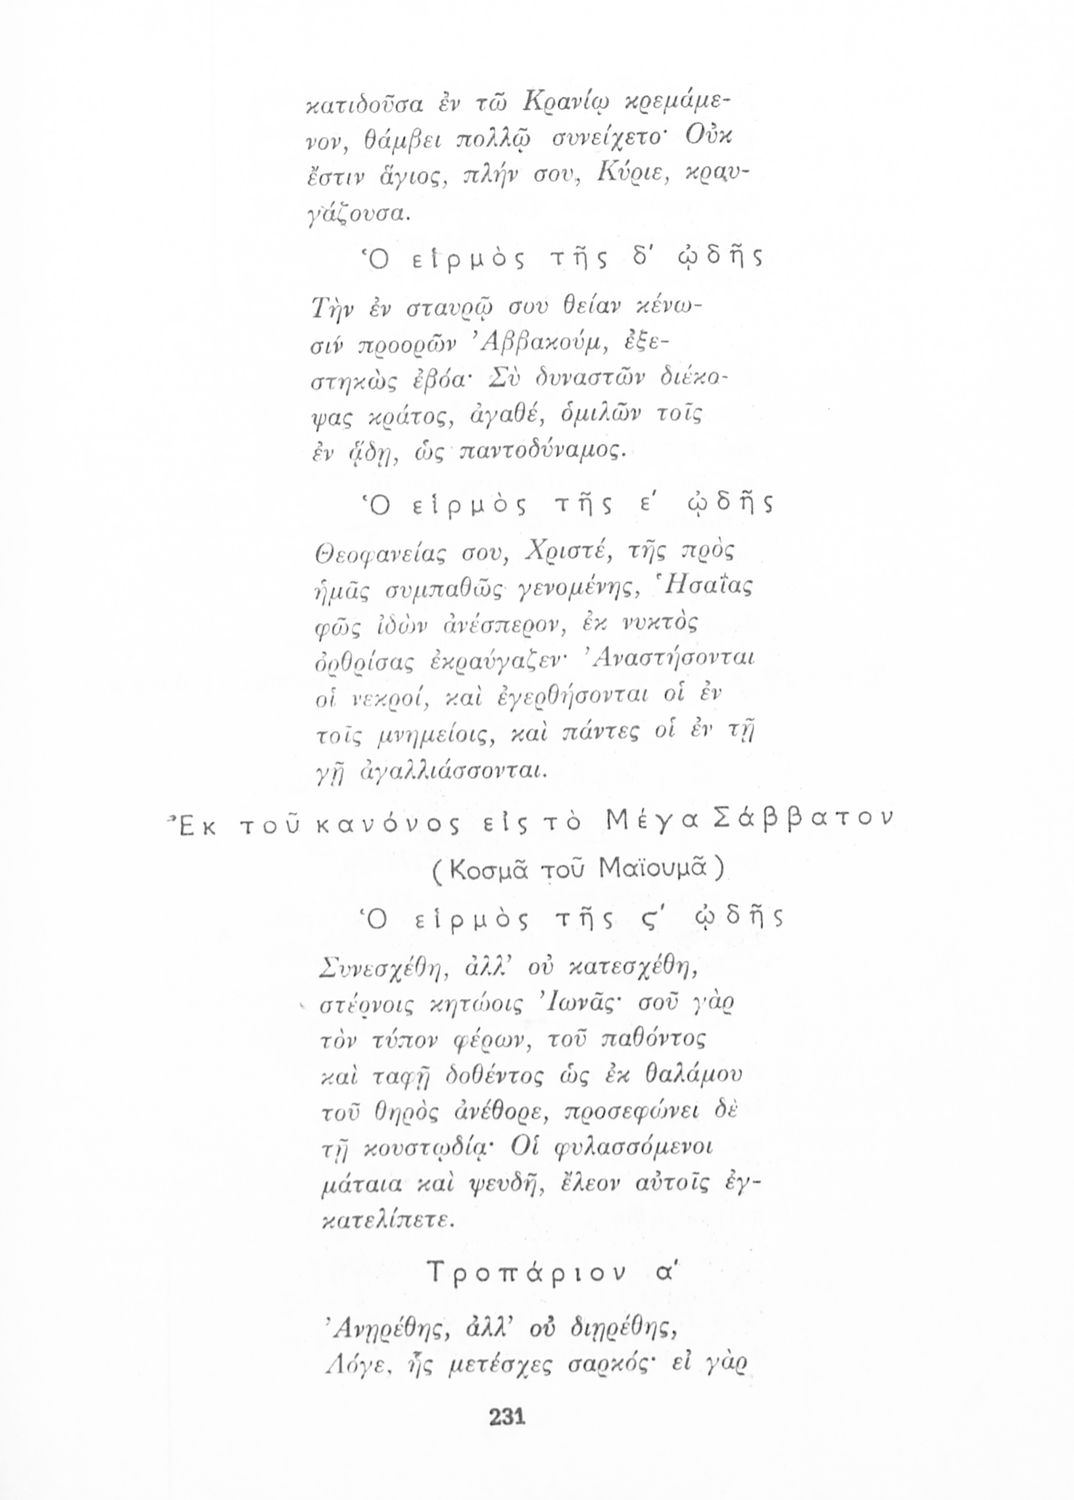 κατιδοῦσα ἐν τῶ Κρανίῳ κρεμάμε-
νον, θάμβει πολλῷ συνείχετο· Οὐκ
ἔστιν ἅγιος, πλήν σου, Κύριε, κραυ-
γάζουσα.
Ὁ εἱρμὸς τῆς δ' ᾠδῆς
Τὴν ἐν σταυρῷ σου θείαν κένω-
σιν προορῶν Ἀββακούμ, ἐξε-
στηκὼς ἐβόα· Σὺ δυναστῶν διέκο-
ψας κράτος, ἀγαθέ, ὁμιλῶν τοῖς
ἐν ᾅδῃ, ὡς παντοδύναμος.
Ὁ εἱρμὸς τῆς ε' ᾠδῆς
Θεοφανείας σου, Χριστέ, τῆς πρὸς
ἡμᾶς συμπαθῶς γενομένης, Ἡσαΐας
φῶς ἰδὼν ἀνέσπερον, ἐκ νυκτὸς
ὀρθρίσας ἐκραύγαζεν· Ἀναστήσονται
οἱ νεκροί, καὶ ἐγερθήσονται οἱ ἐν
τοῖς μνημείοις, καὶ πάντες οἱ ἐν τῇ
γῇ ἀγαλλιάσσονται.
Ἐκ τοῦ κανόνος εἰς τὸ Μέγα Σάββατον
(Κοσμᾶ τοῦ Μαϊουμᾶ)
Ὁ εἱρμὸς τῆς ς' ᾠδῆς
Συνεσχέθη, ἀλλ' οὐ κατεσχέθη,
στέρνοις κητώοις Ἰωνᾶς· σοῦ γὰρ
τὸν τύπον φέρων, τοῦ παθόντος
καὶ ταφῇ δοθέντος ὡς ἐκ θαλάμου
τοῦ θηρὸς ἀνέθορε, προσεφώνει δὲ
τῇ κουστῳδίᾳ· Οἱ φυλασσόμενοι
μάταια καὶ ψευδῆ, ἔλεον αὐτοῖς ἐγ-
κατελίπετε.
Τροπάριον α'
Ἀνῃρέθης, ἀλλ' οὐ διῃρέθης,
Λόγε, ἧς μετέσχες σαρκός· εἰ γὰρ
231